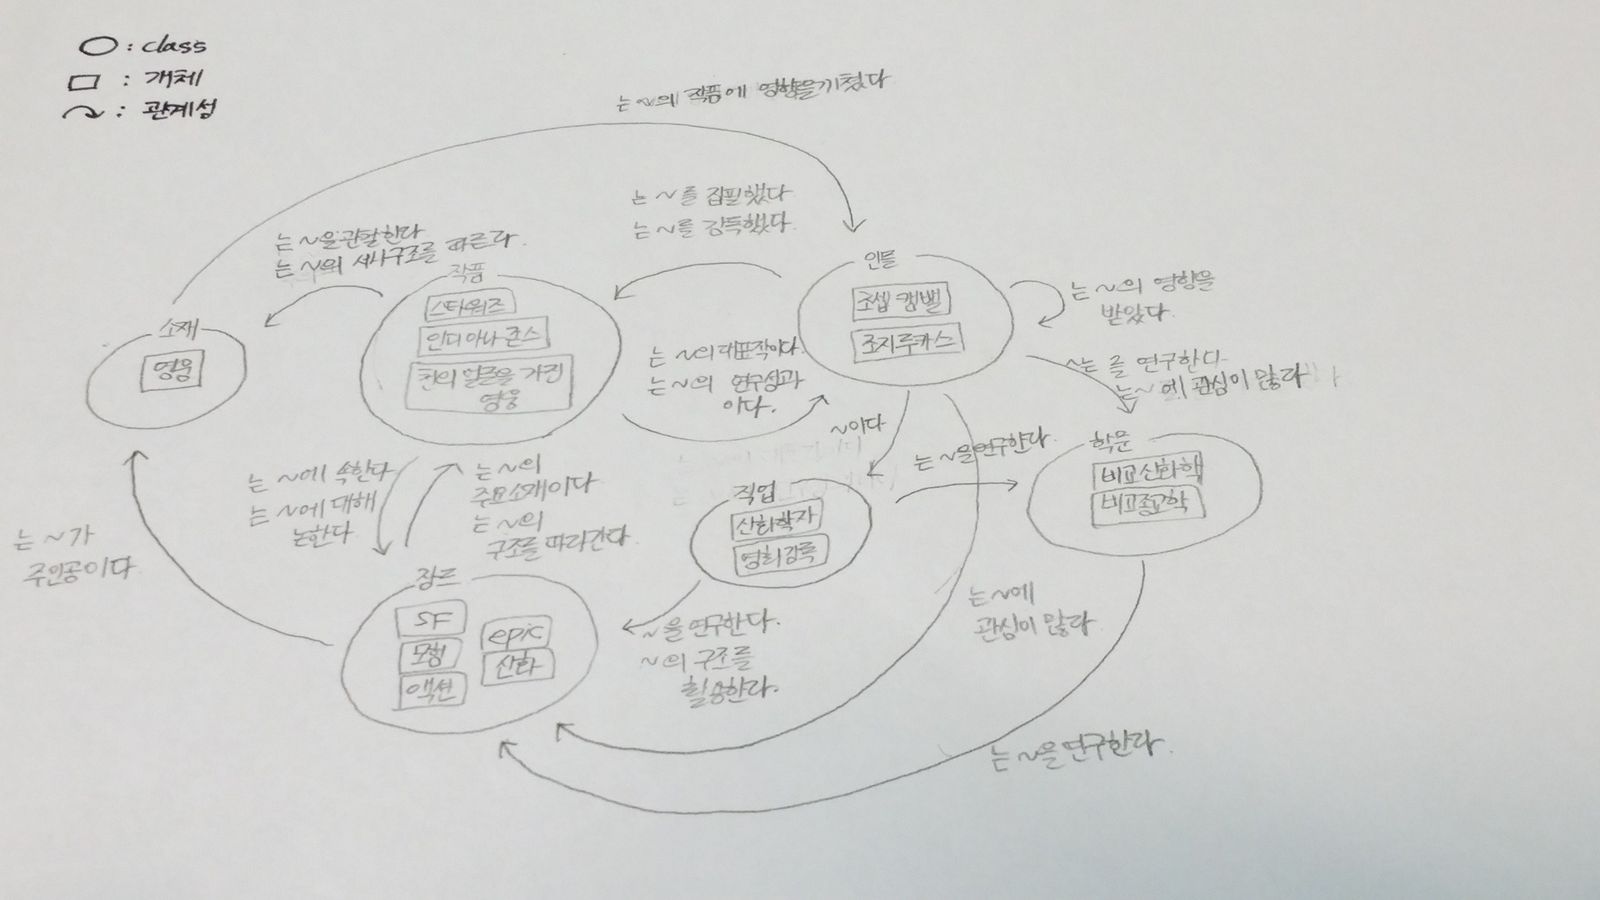 ○ : class
□ : 개체
↝ : 관계성
는 ~의 작품에 영향을 끼쳤다
는 ~를 집필했다
는 ~를 감독했다.
는 ~을 관찰한다.
는 ~의 서사구조를 따른다.
작품
스타워즈
인디아나 존스
천의 얼굴을 가진
영웅
인물
조셉 캠벨
조지루카스
는 ~의 영향을
받았다.
소재
영웅
는 ~의 대표작이다.
는 ~의 연구성과
이다.
~는 을 연구한다.
는 ~에 관심이 많다
~이다
는 ~을 연구한다.
학문
비교신화학
비교종교학
는 ~에 속한다
는 ~에 대해
논한다.
는 ~의
주요소재이다
는 ~의
구조를 따라간다.
직업
신화학자
영화감독
는 ~가
주인공이다.
장르
SF
모험
액션
epic
신화
~을 연구한다.
~의 구조를
활용한다.
는 ~에
관심이 많다.
는 ~을 연구한다.